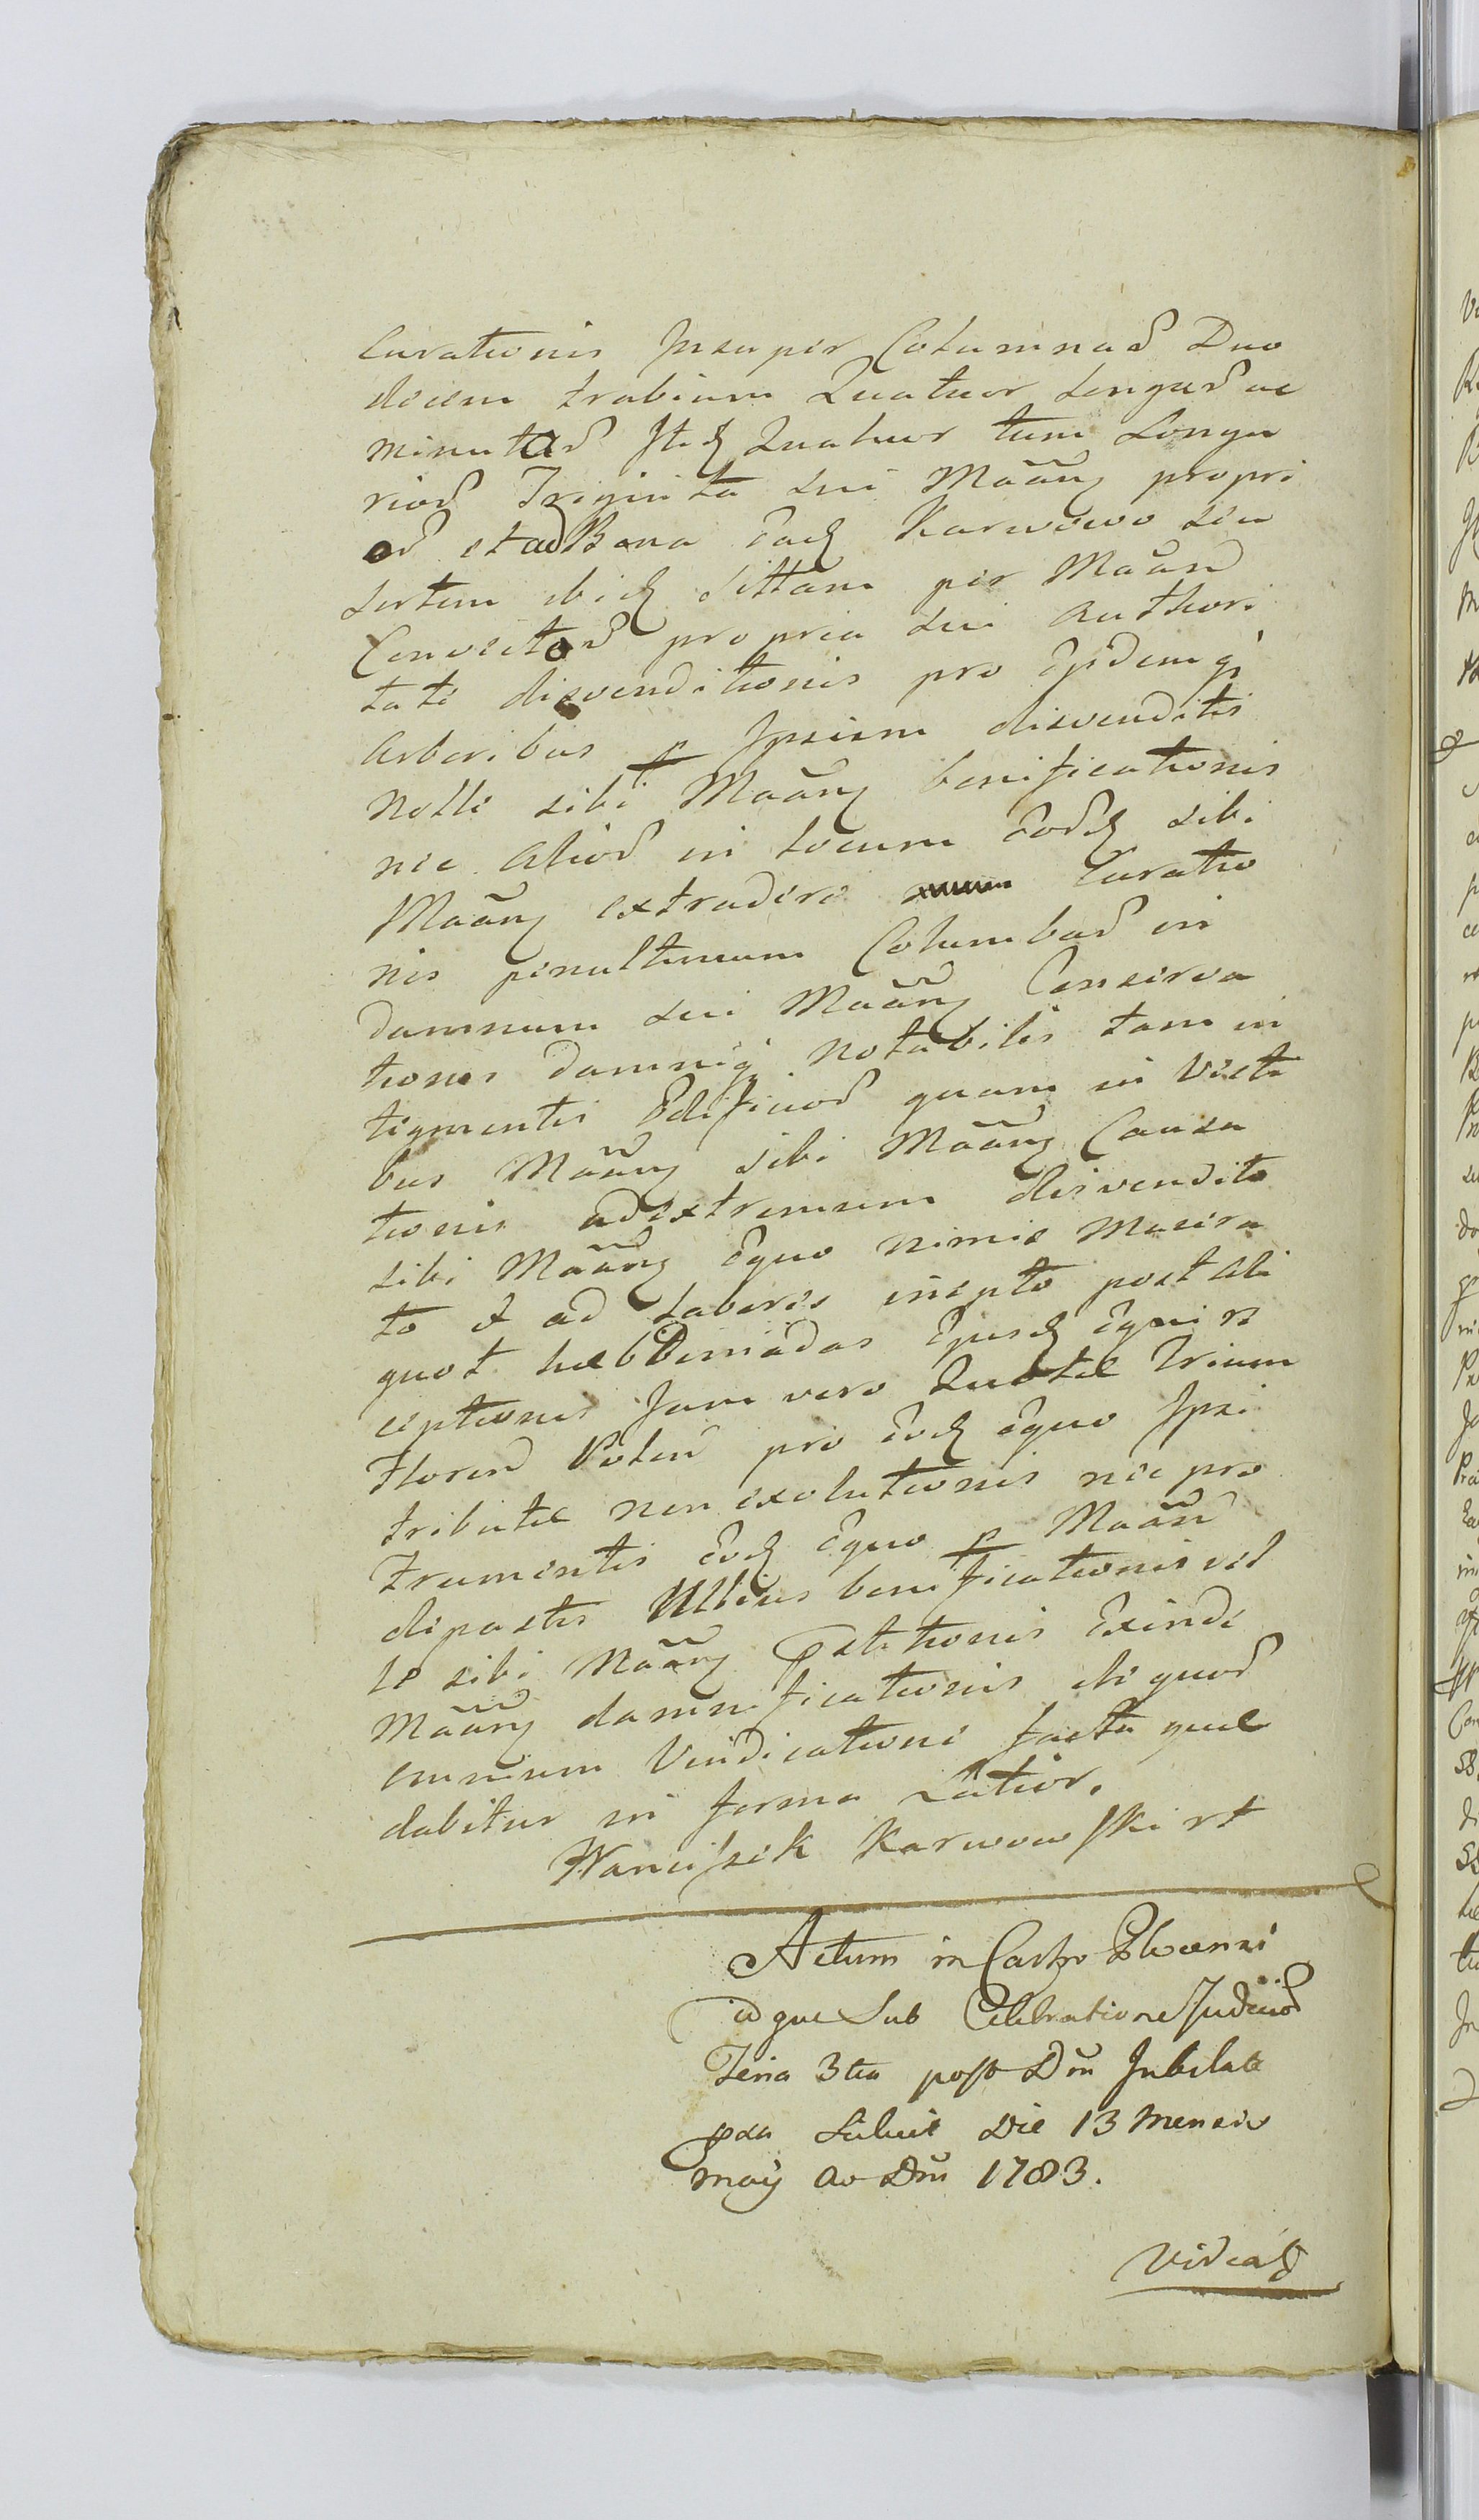 curationis Insuper Columnaꝝ Duo
decem trabium Quatuor Longaꝝ ac
minutaꝝ Itꝫ Quatuor tum Longu
rioꝝ Triginta sui Maãnꝫ propri
oꝝ et ad Bona Eadꝫ Karwowo seu
Sortem ibidꝫ Sittam per Maãn
Convectoꝝ propria sui authori
tate disvenditionis pro Ejsdemqꝫ
Arboribus p Ipsum disvenditis
nolle sibi Maãnꝫ benificationis
nec Alioꝝ in Locum Eoꝝdꝫ sibi
Maãnꝫ extradere Curatio
nis penultimum Columbaꝝ in
damnum sui Maãnꝫ Conserva
tionis damniqꝫ notabilis tam in
tigmentis Edificioꝝ quam in Victi
bus Maãnꝫ sibi Maãnꝫ Causa
tionis ad extremum disvendito
sibi Maãnꝫ Equo nimis macera
to et ad Labores inepto post ali
quot hebdomadas Ejusdꝫ Equi re
ceptionis Jam vero Quotae Trium
Floren Polon pro Eodꝫ Equo Ipsi
tributae non exolutionis nec pro
Frumentis Eodꝫ Equo p Maãn
depastis Ullius benificationis vel
le sibi Maãnꝫ Pstitionis Exinde
Maãnꝫ damnificationis de quoꝝ
omnium Vindicatione facta quae
dabitur in forma Latior.
Wawrzyniec Karwowski rt
Actum in Castro
idque Sub Celebratione Judicioꝝ
Feria 3tia post Dm̃ Jubilate
pxa Scilicet Die 13 Mensis
maij Ao Dm̃ 1783.
Videatꝫ